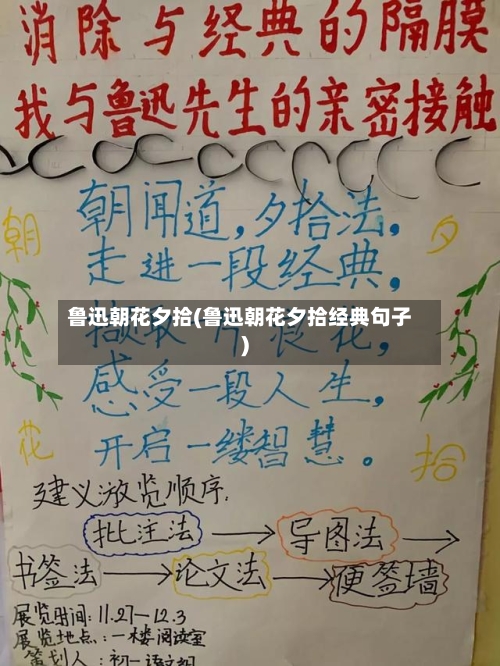 消除与经典的隔膜
我与鲁迅先生的亲密接触
朝闻道,夕拾法,
走进一段经典,
鲁迅朝花夕拾(鲁迅朝花夕拾经典句子
)
感受一段人生,
开启一缕智慧。
朝
花
夕
拾
建议浏览顺序:
批注法
导图法
书签法
论文法
便签墙
展览时间:11.27—12.3
展览地点:一楼阅读室
策划人:初一语文组